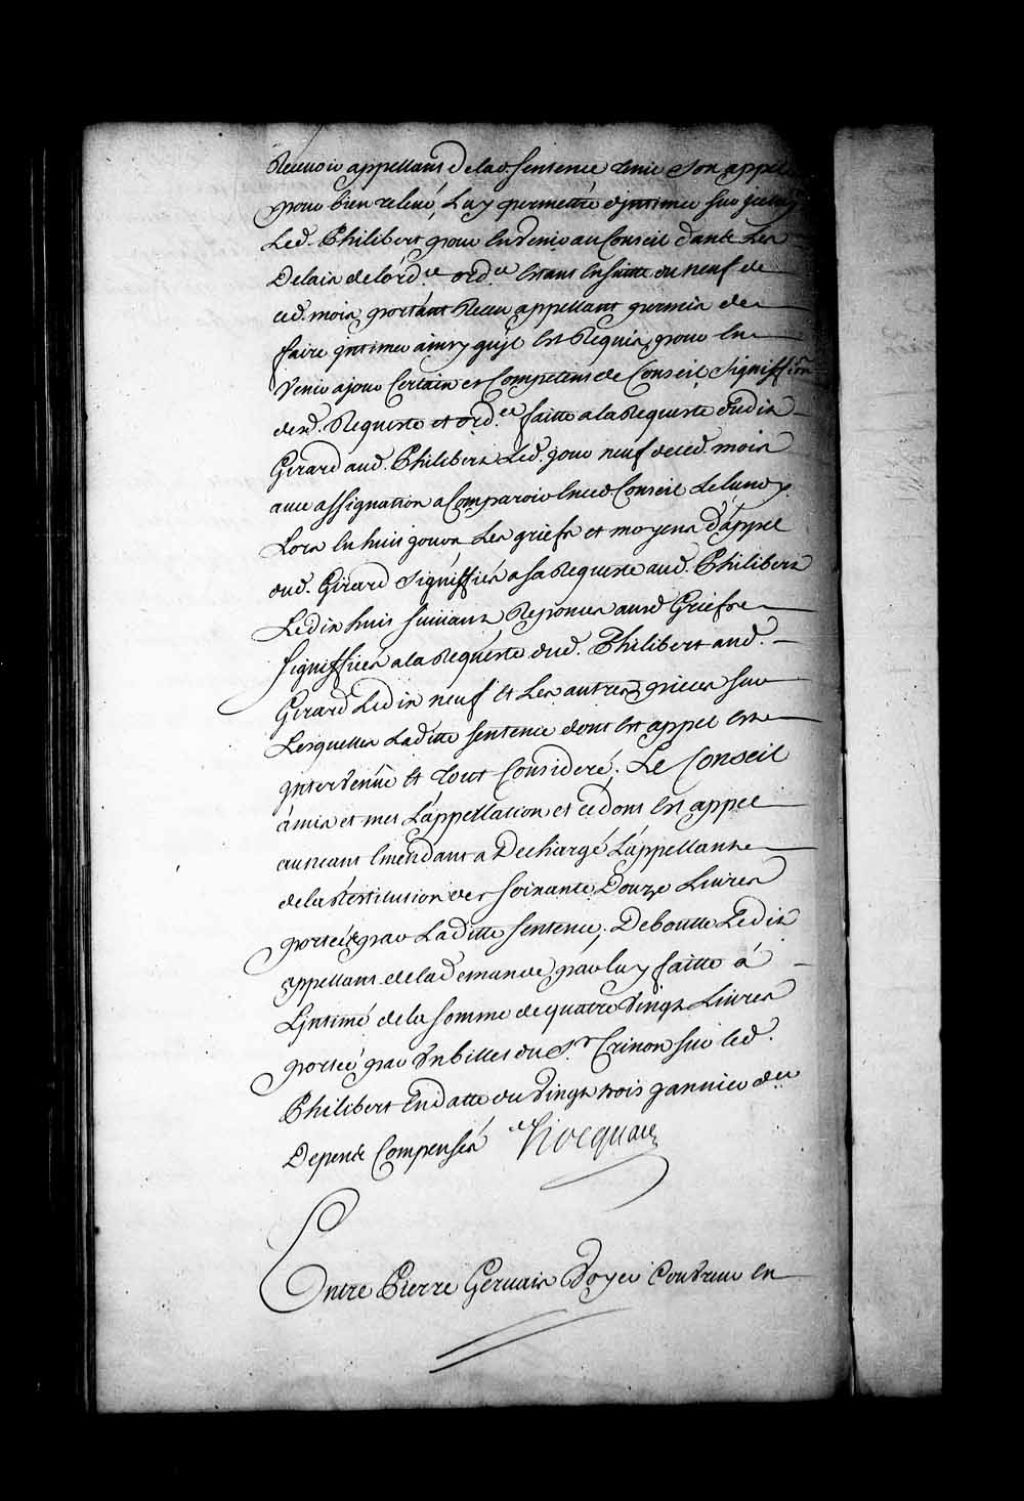 Recevoir appellant de lad. Sentence tenir Son appel
pour bien relevé, Luy permettre dintimer Sur Jceluy
Led. Philibert pour En Venir au Conseil dans Les
Delais de Lord.ce ord.ce Estant Ensuitte du neuf de
ced. mois portant Receu appellant permis de
faire jntimer ainsy qu'jl Est Requis, pour En
Venir a jour Certain et Competent de Conseil, Signiffi.on
desd. Requeste et ord.ce faitte a la Requeste dudit
Girard aud. Philibert Led. jour neuf de ced. mois
avec assignation a Comparoir En ced. Conseil Le Lundy
Lors En huit jours Les griefs et moyens d'appel
dud. Girard Signiffiés a Sa Requeste aud. Philibert
Le dix huit Suivant Reponses ausd. Griefs
Signiffiées a la Requeste dud. Philibert aud.
Girard Le dix neuf Et Les autres pieces Sur
Lesquelles Laditte Sentence dont Est appel Est
jntervenüe Et tout Consideré. Le Conseil
a mis et met L'appellation et ce dont Est appel
au neant Emendant a Dechargé L'appellant
de la Restitution des Soixante Douze Livres
portée par Laditte Sentence; Deboutte Ledit
appellant de la Demande par luy faitte à
L'jntimé de la Somme de quatre Vingt Livres
portée par Un billet du S.r Crinon Sur led.
Philibert En datte du Vingt trois janvier d.er
Depens Compensés Hocquart
Entre Pierre Gervais Voyer Couvreur En